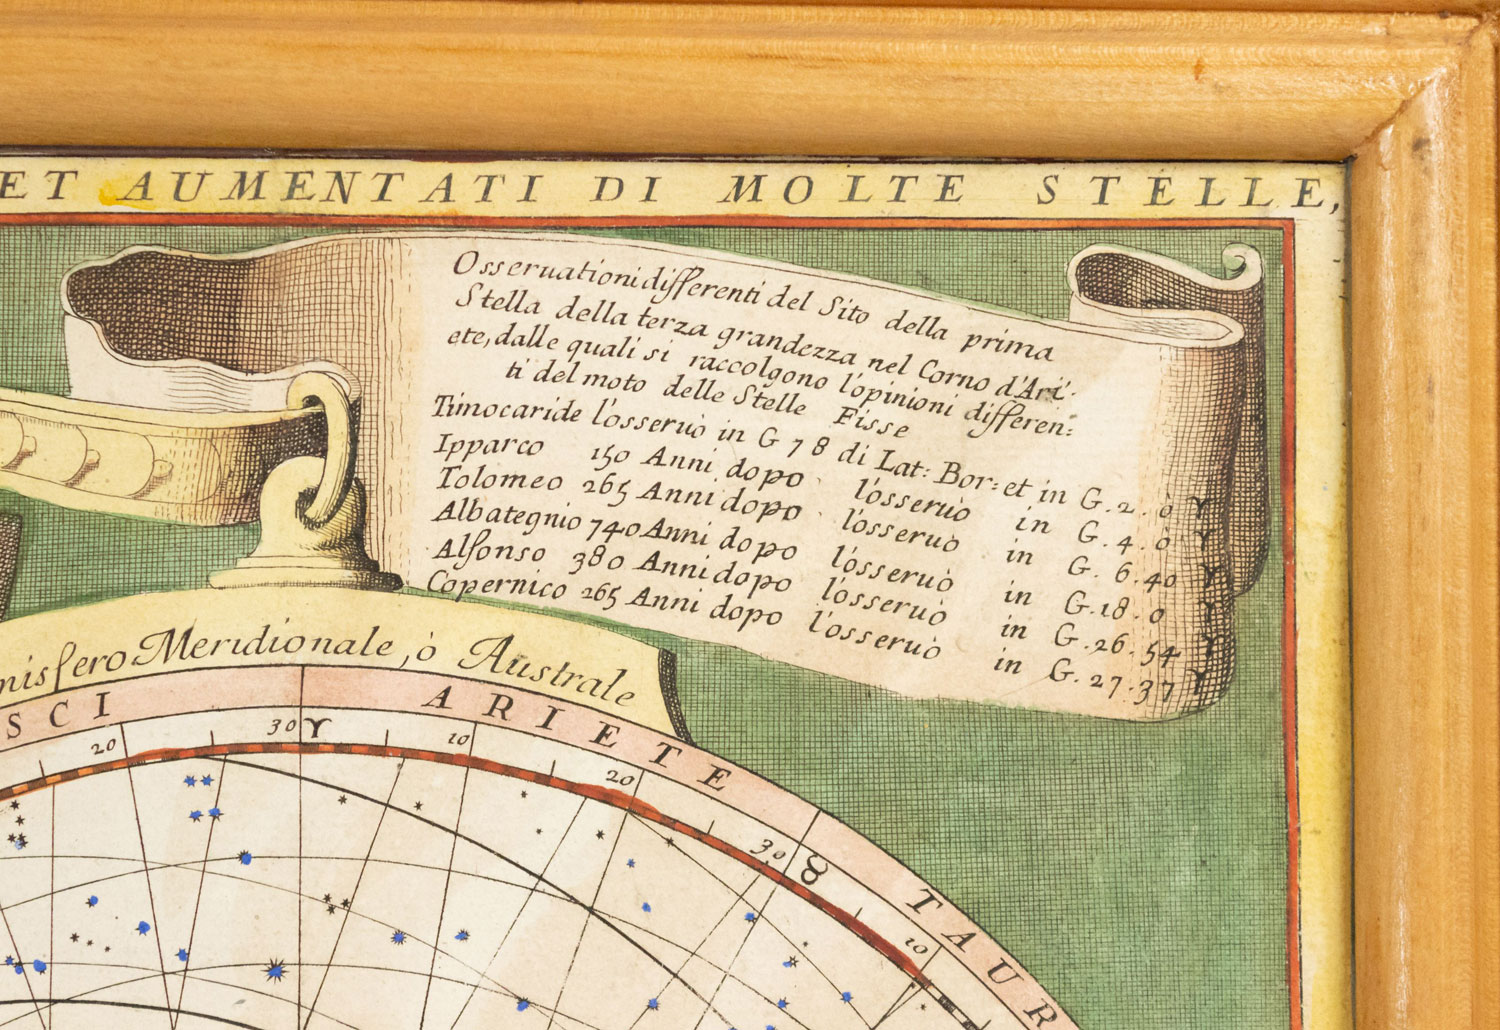 ET AUMENTATI DI MOLTE STELLE,
Osseruationi differenti del Sito della prima
Stella della terza grandezza nel Corno d'Ari:
ete, dalle quali si raccolgono l'opinioni differen:
ti del moto delle Stelle Fisse
Timocaride l'osseruò in G 78 di Lat: Bor: et in G. 2. 0 ♈
Ipparco 150 Anni dopo l'osseruò in G. 4. 0 ♈
Tolomeo 265 Anni dopo l'osseruò in G. 6. 40 ♈
Albategnio 740 Anni dopo l'osseruò in G. 18. 0 ♈
Alfonso 380 Anni dopo l'osseruò in G. 26. 54 ♈
Copernico 265 Anni dopo l'osseruò in G. 27. 37 ♈
misfero Meridionale, ò Australe
SCI ARIETE TAUR
20 30 ♈ 10 20 30 ♉ 10